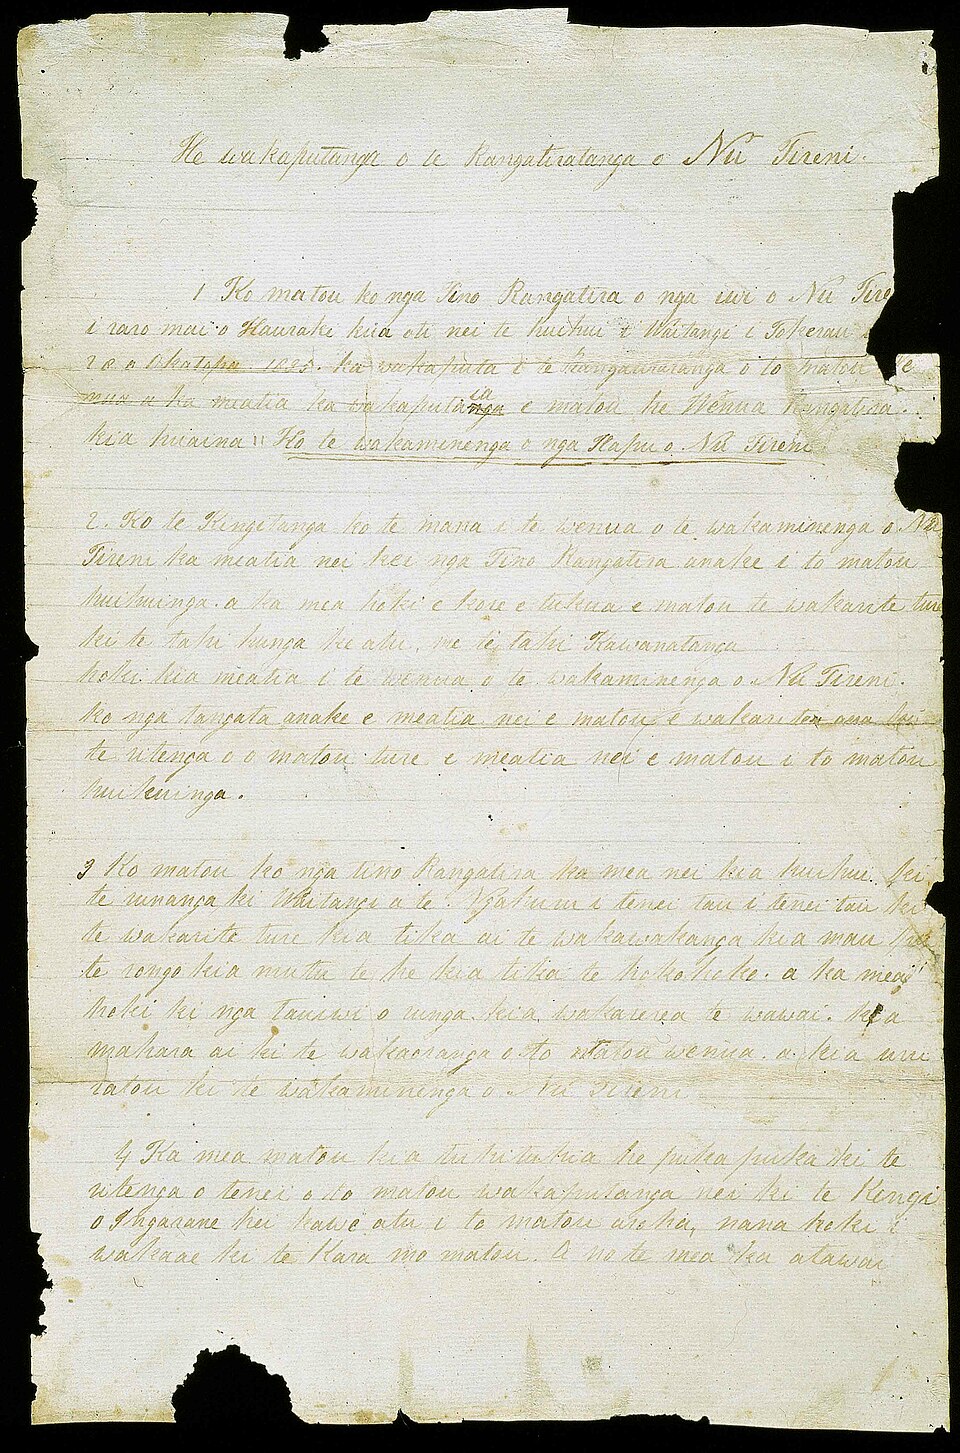 He wakaputanga o te Rangatiratanga o Nu Tireni.
1 Ko matou ko nga Tino Rangatira o nga iwi o Nu Tire
i raro mai o Hauraki kua oti nei te huihui i Waitangi i Tokerau
28 o Oketopa 1835. ka wakaputa i te Rangatiratanga o to matou
a ka meatia ka wakaputaia e matou he Wenua Rangatira.
kia huaina "Ko te wakaminenga o nga Hapu o Nu Tireni
2. Ko te Kingitanga ko te mana i te wenua o te wakaminenga o Nu
Tireni ka meatia nei kei nga Tino Rangatira anake i to matou
huihuinga. a ka mea hoki e kore e tukua e matou te wakarite ture
ki te tahi hunga ke atu, me te tahi Kawanatanga
hoki kia meatia i te wenua o te wakaminenga o Nu Tireni.
ko nga tangata anake e meatia nei e matou e wakarite ana ki
te ritenga o o matou ture e meatia nei e matou i to matou
huihuinga.
3 Ko matou ko nga tino Rangatira ka mea nei kia huihui ki
te runanga ki Waitangi a te Ngahuru i tenei tau i tenei tau ki
te wakarite ture kia tika ai te wakawakanga kia mau
te rongo kia mutu te he kia tika te hokohoko. a ka mea
hoki ki nga tauiwi o runga kia wakarerea te wawai. kia
mahara ai ki te wakaoranga o to matou wenua. a kia uru
ratou ki te wakaminenga o Nu Tireni
4 Ka mea matou kia tuhituhia he pukapuka ki te
ritenga o tenei o to matou wakaputanga nei ki te Kingi
o Ingarane hei kawe atu i to matou aroha, nana hoki i
wakaae ki te Kara mo matou. A no te mea ka atawai